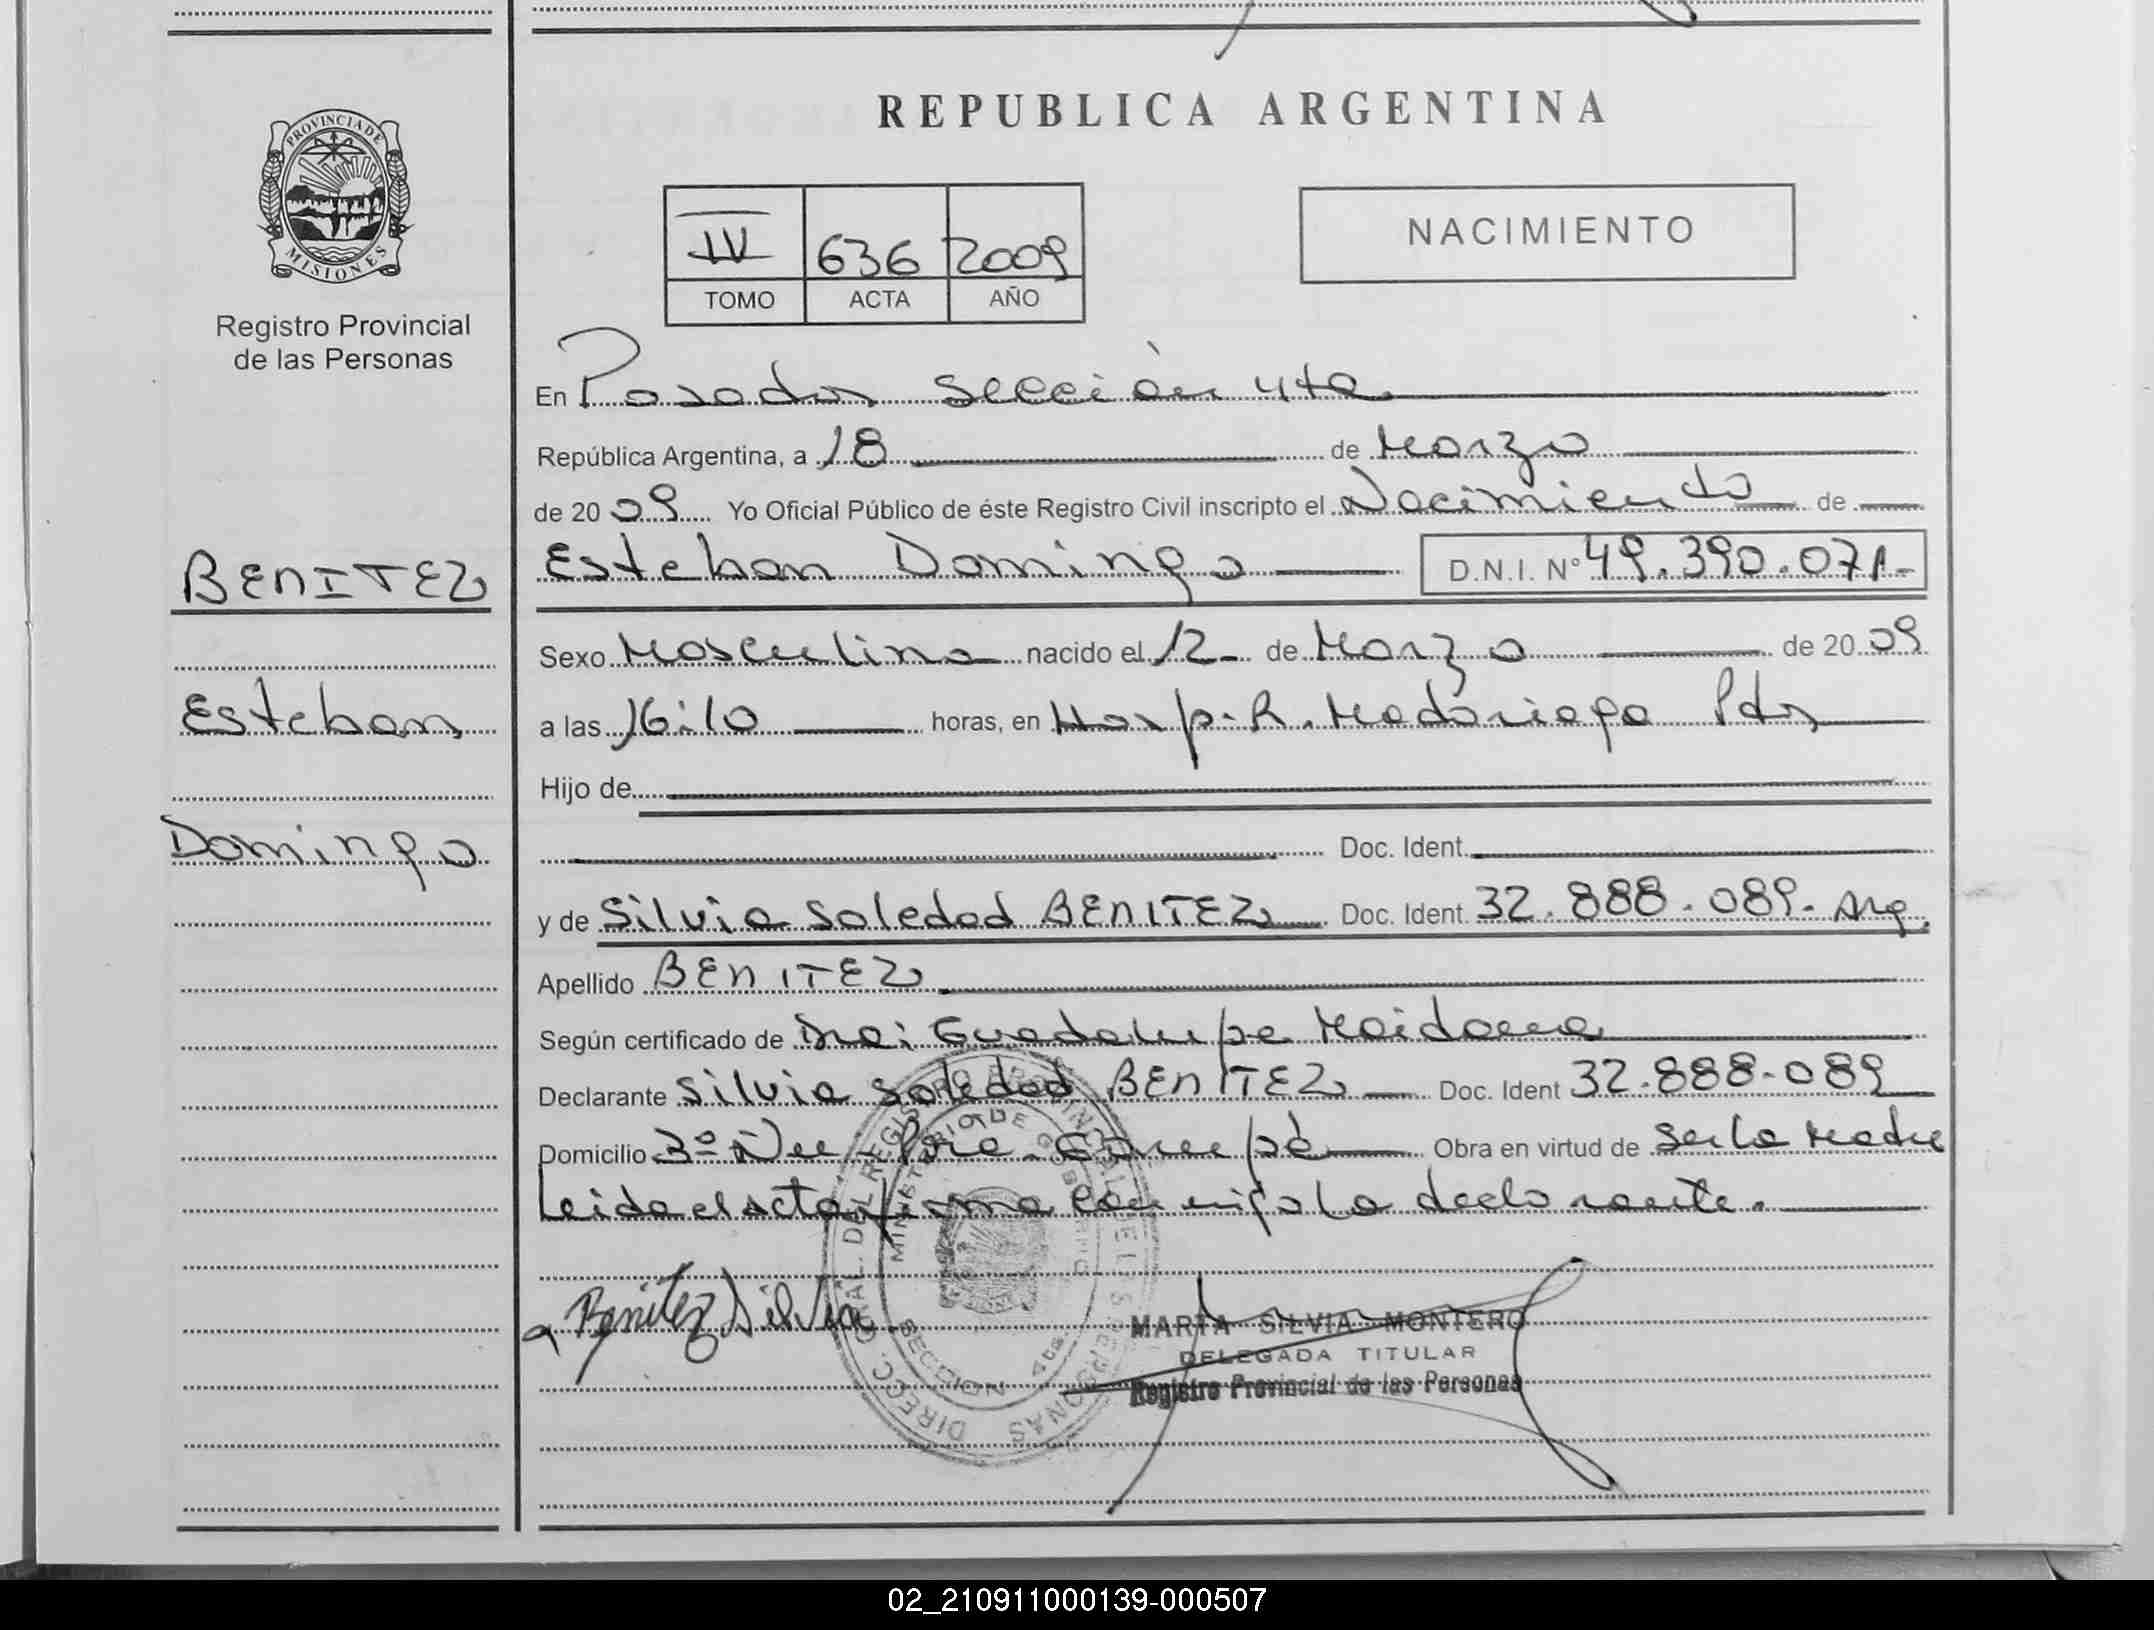 REPUBLICA ARGENTINA
PROVINCIA DE
MISIONES
Registro Provincial
de las Personas
IV 636 2009
TOMO ACTA AÑO
NACIMIENTO
En Posadas Sección 4ta
República Argentina, a 18 de Marzo
de 2009 Yo Oficial Público de éste Registro Civil inscripto el Nacimiento de
BENITEZ
Esteban Domingo D.N.I. Nº 49.390.071-
Sexo Masculino nacido el 12 de Marzo de 2009
Esteban
a las 16:10 horas, en Hosp. R. Madariaga Pdas
Hijo de
Domingo
Doc. Ident.
y de Silvia Soledad BENITEZ Doc. Ident. 32.888.089. Arg.
Apellido BENITEZ
Según certificado de Dra: Guadalupe Maidana
Declarante Silvia Soledad BENITEZ Doc. Ident 32.888.089
Domicilio 3º Obra en virtud de ser la Madre
Leida el acta firma conmigo la declarante.
Benitez Silvia
MARTA SILVIA MONTERO
DELEGADA TITULAR
Registro Provincial de las Personas
DIRECC. GRAL. DEL REGISTRO PROVINCIAL DE LAS PERSONAS
MINISTERIO DE GOBIERNO
SECCION 4ta.
02_210911000139-000507